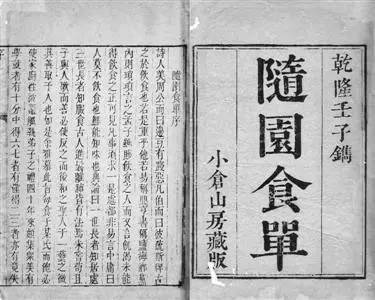 乾隆壬子鐫
隨園食單
小倉山房藏版
隨園食單序
詩人美周公而曰籩豆有踐惡凡伯而曰彼疏斯稗古
之於飲食也若是重乎他若易稱鼎亨書稱鹽梅鄉黨
內則瑣瑣言之孟子雖賤飲食之人而又言飢渴未能
得飲食之正可見凡事須求一是處都非易言中庸曰
人莫不飲食也鮮能知味也典論曰一世長者知居處
三世長者知服食古人進鬐離肺皆有法焉未嘗苟且
子與人歌而善必使反之而後和之聖人于一藝之微
其善取于人也如是余雅慕此旨每食于某氏而飽必
使家廚往彼灶觚執弟子之禮四十年來頗集眾美有
學就者有十分中得六七者有僅得二三者亦有竟失
序